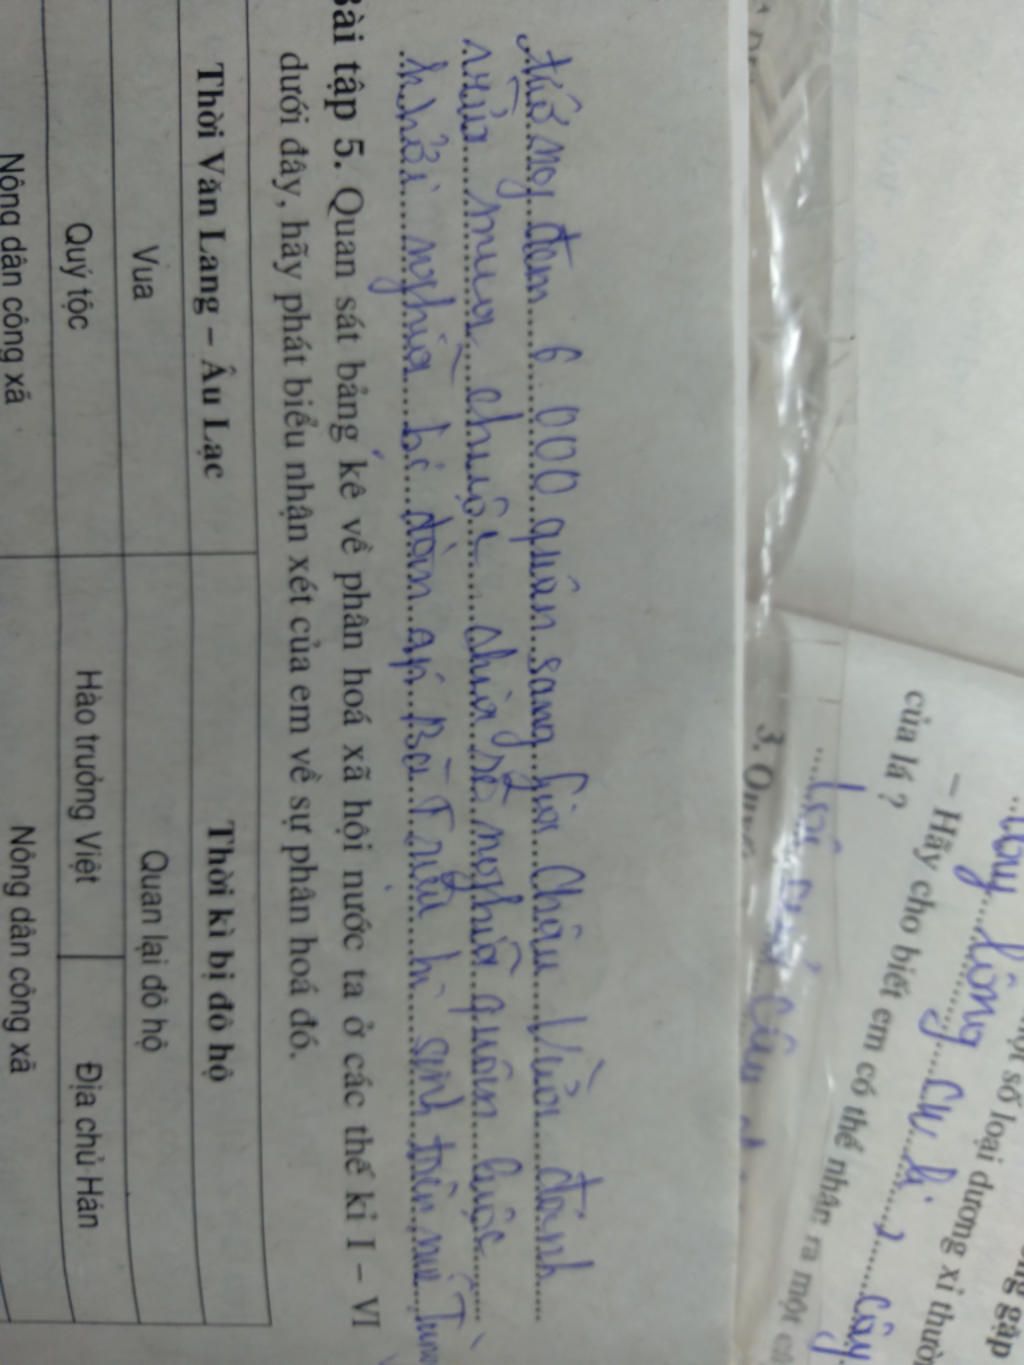 đem 6 000 quân sang Giao Châu Vừa đánh
vừa mua chuộc chia sẻ nghĩa quân Cuộc
khởi nghĩa bị đàn áp Bà Triệu hi sinh trên núi Tùng
Bài tập 5. Quan sát bảng kê về phân hoá xã hội nước ta ở các thế kỉ I – VI
dưới đây, hãy phát biểu nhận xét của em về sự phân hoá đó.
Thời Văn Lang – Âu Lạc Thời kì bị đô hộ
Vua Quan lại đô hộ
Quý tộc Hào trưởng Việt Địa chủ Hán
Nông dân công xã Nông dân công xã
số loại dương xỉ thường gặp
lông cu li, cây
– Hãy cho biết em có thể nhận ra một
của lá ?
3.